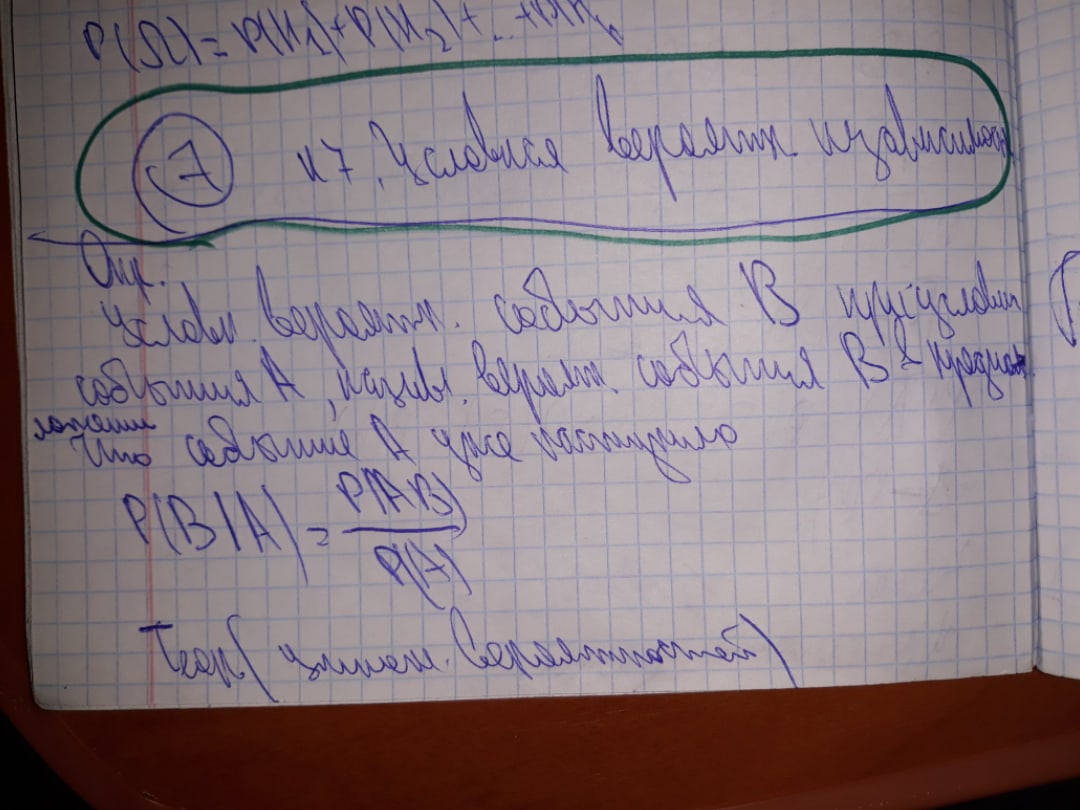 P(Ω)=P(H₁)+P(H₂)+...+P(H
7 п7. Условная вероятн. независимость
Опр.
Условн. вероятн. события B при условии
события A, назыв. вероятн. события B в предпо
ложении
что событие A уже наступило
P(B|A) = P(AB)
P(A)
Теор(умнож. вероятностей)